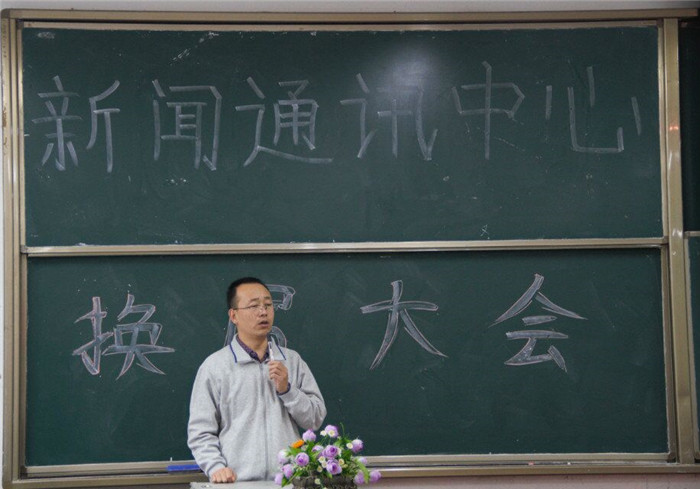 新闻通讯中心
换届大会